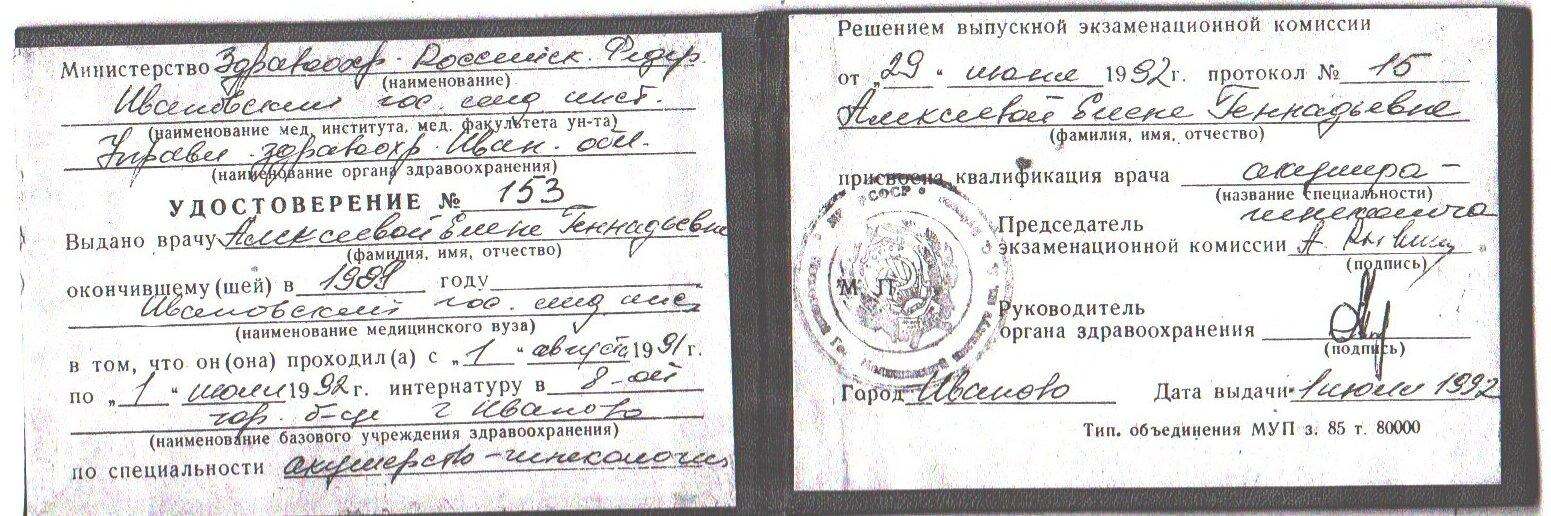 Министерство Здравоохр. Российск. Федер.
(наименование)
Ивановский гос. мед инст.
(наименование мед. института, мед. факультета ун-та)
Управл. здравоохр. Иван. обл.
(наименование органа здравоохранения)
УДОСТОВЕРЕНИЕ № 153
Выдано врачу Алексеевой Елене Геннадьевне
(фамилия, имя, отчество)
окончившему (шей) в году
Ивановский гос. мед инст
(наименование медицинского вуза)
в том, что он (она) проходил(а) с „1“ августа 1991 г.
по „1“ июля 1992 г. интернатуру в 8-ой
гор. б-це г Иваново
(наименование базового учреждения здравоохранения)
по специальности акушерство-гинекология
Решением выпускной экзаменационной комиссии
от „29“ июня 1992 г. протокол № 15
Алексеевой Елене Геннадьевне
(фамилия, имя, отчество)
присвоена квалификация врача акушера-
(название специальности)
гинеколога
Председатель
экзаменационной комиссии
(подпись)
М. П.
Руководитель
органа здравоохранения
(подпись)
Город Иваново Дата выдачи 1 июля 1992
Тип. объединения МУП з. 85 т. 80000